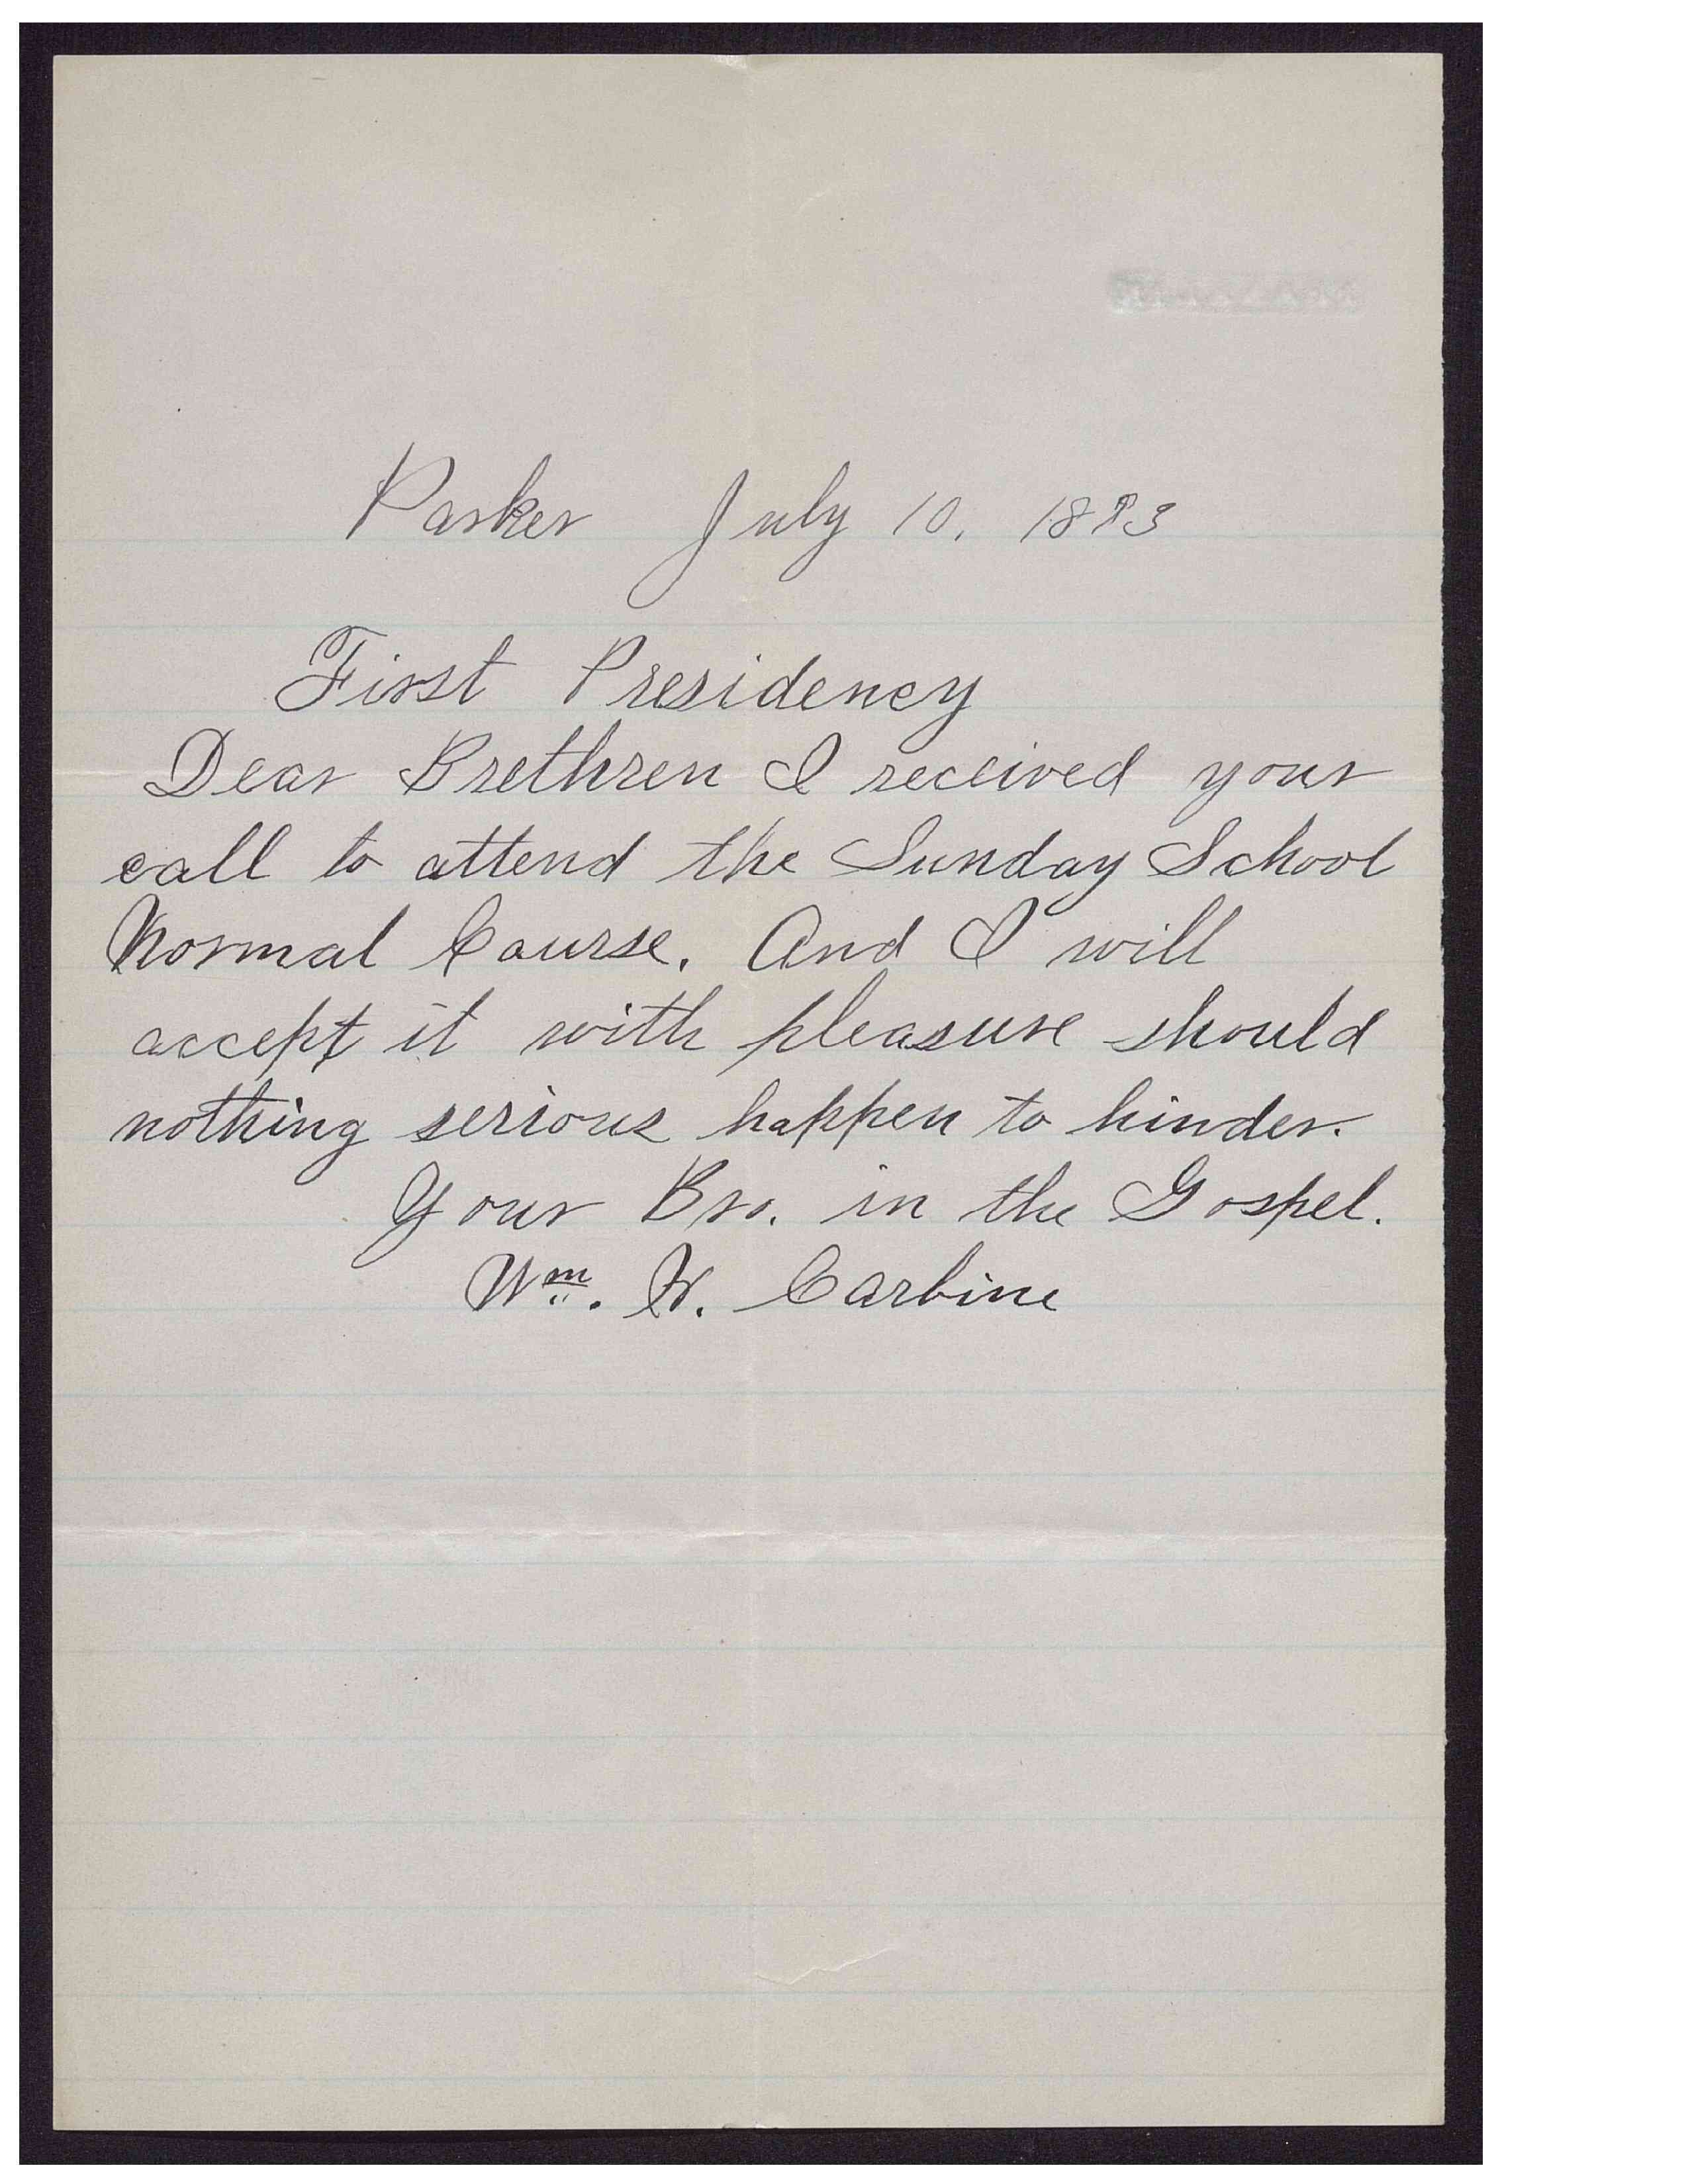 Parker July 10, 1893
First Presidency
Dear Brethren I received your
call to attend the Sunday School
Normal Course. And I will
accept it with pleasure should
nothing serious happen to hinder.
Your Bro. in the Gospel.
Wm. W. Carbine